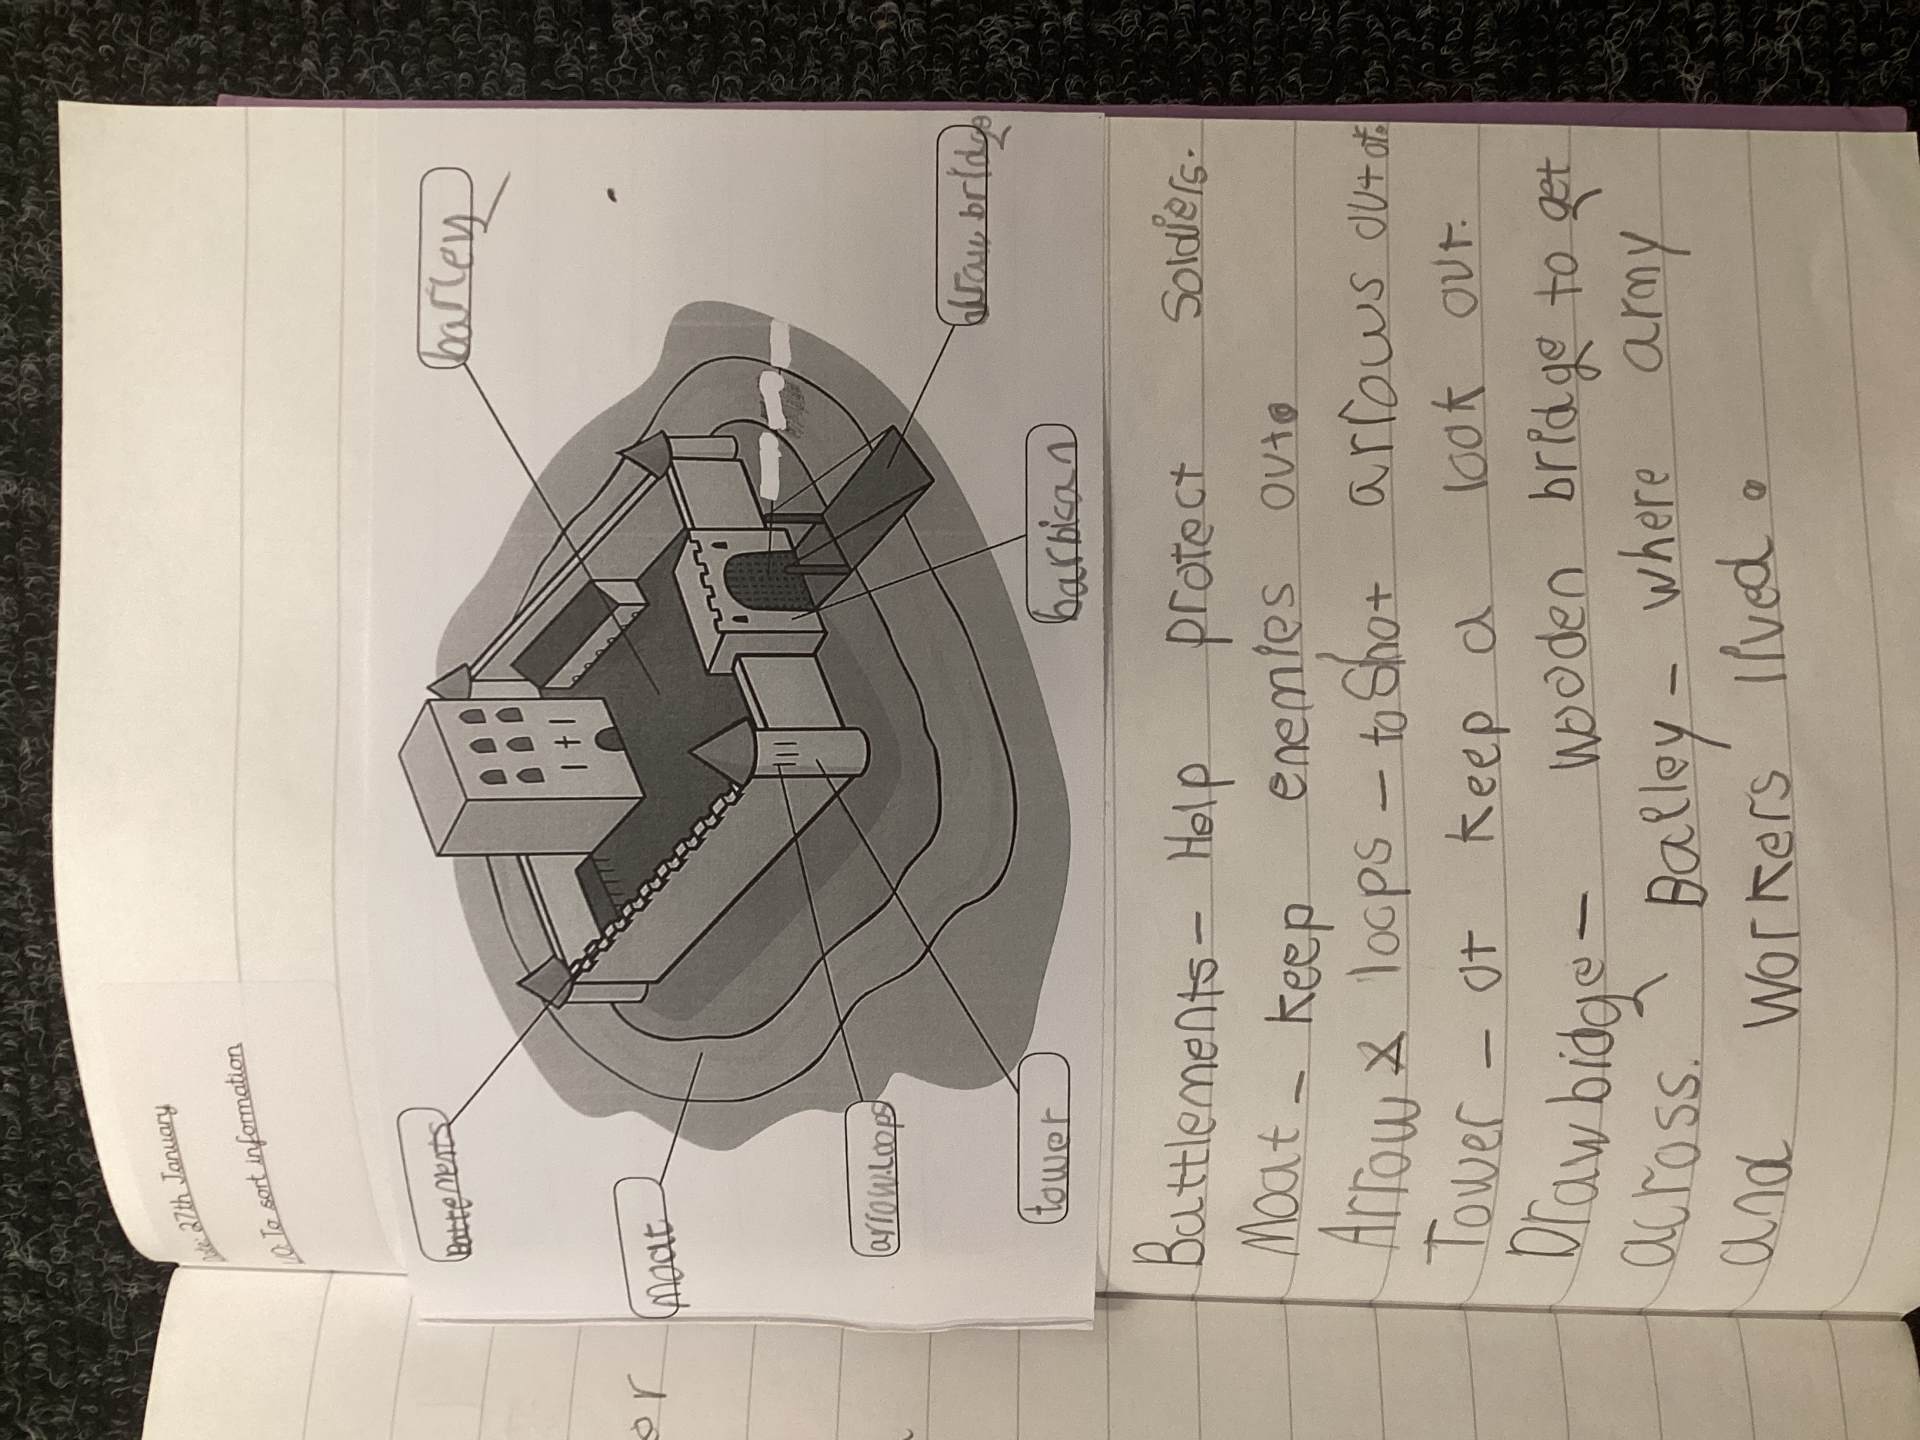 Date: 27th January
LO: To sort information
battlements
barley
moat
arrow loops
draw bridge
tower
barbican
Battlements - Help protect soldiers.
Moat - keep enemies out.
Arrow loops - to shot arrows out of.
Tower - ot keep a look out.
Drawbidge - wooden bridge to get
across. Bailey - where army
and workers lived.
or